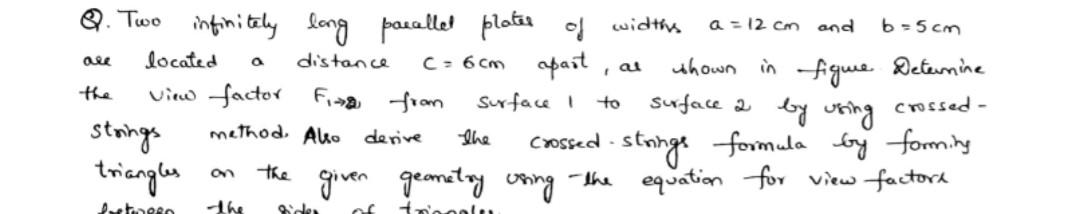 Q. Two infinitely long parallel plates of widths a = 12 cm and b = 5 cm
are located a distance c = 6 cm apart, as shown in figure. Determine
the view factor F1→2 from surface 1 to surface 2 by using crossed-
strings method. Also derive the crossed-strings formula by forming
triangles on the given geometry using the equation for view factors
between the sides of triangles.